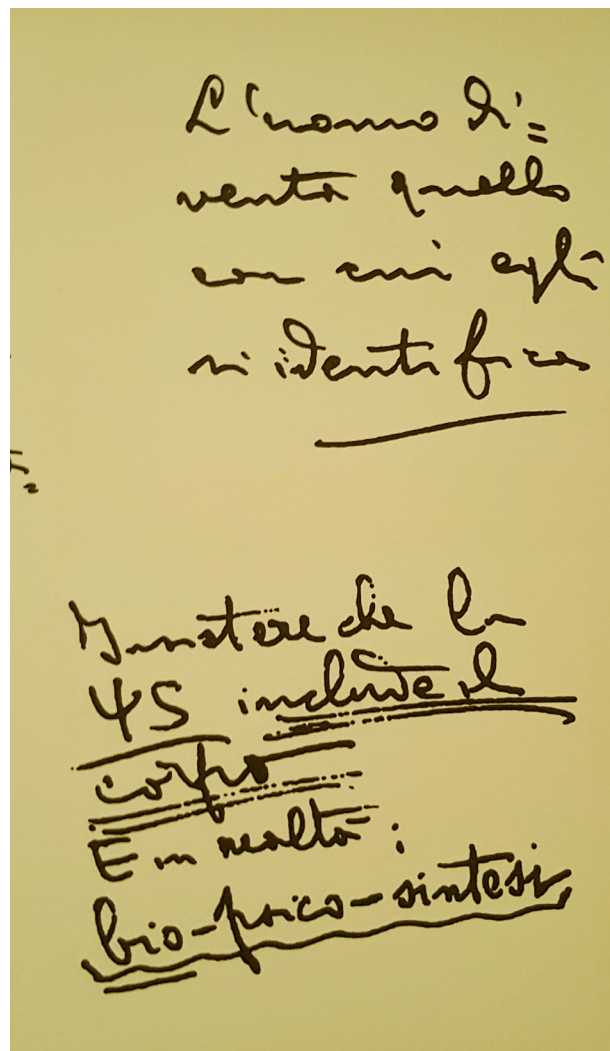 L'uomo di=
venta quello
con cui egli
si identifica
Insistere che la
ΨS include il
corpo
È in realtà:
bio-psico-sintesi